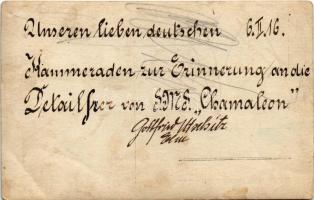 Unseren lieben deutschen 6.II.16.
Kammeraden zur Erinnerung an die
von S.M.S. „Chamaleon"
Gottfried